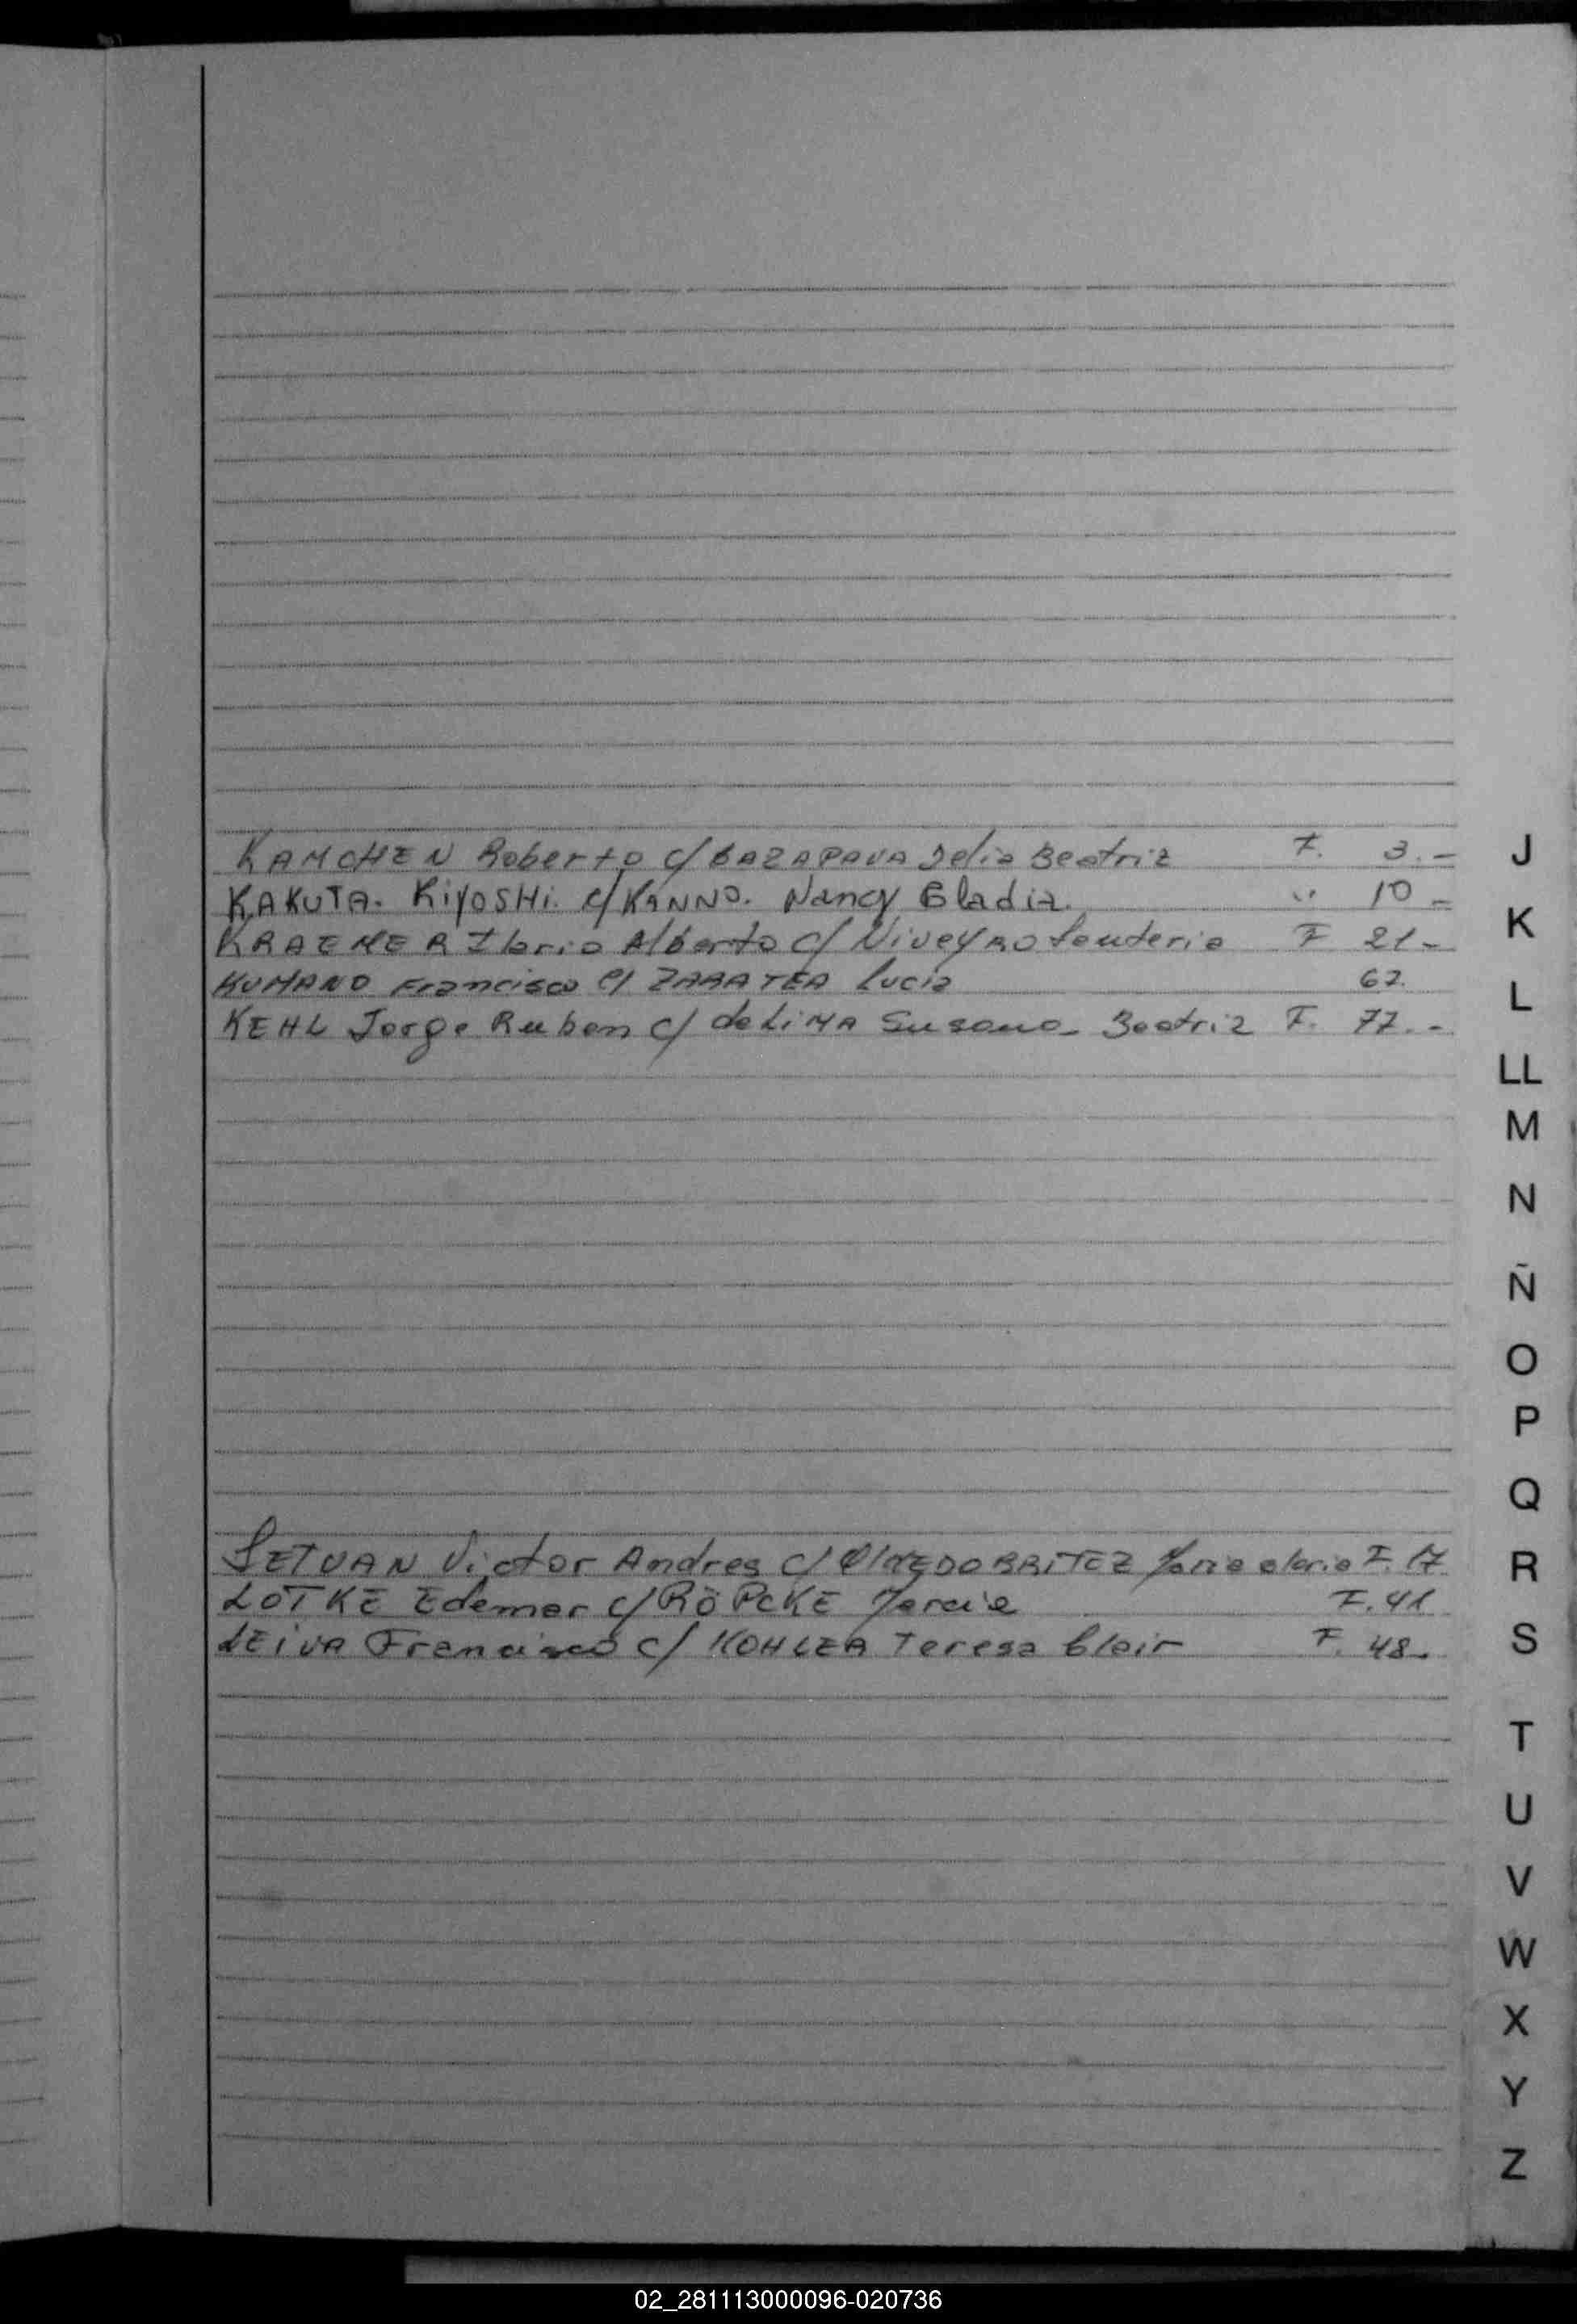 KAMCHEN Roberto c/ BAZAPAVA Delia Beatriz F. 3.-
KAKUTA. KiyosHi. c/ KANNO. Nancy Gladiz. " 10 -
KRAEMER Ilario Alberto c/ Niveyro F 21-
KUMANO Francisco c/ Lucia 67.
KEHL Jorge Ruben c/ de LiMA Susana Beatriz F. 77.-
Victor Andres c/ F. 17
LOTKE Edemar c/ RÖPCKE F. 41
LEiVA Francisco c/ KOHLER Teresa Clair F. 48.
J
K
L
LL
M
N
Ñ
O
P
Q
R
S
T
U
V
W
X
Y
Z
02_281113000096-020736